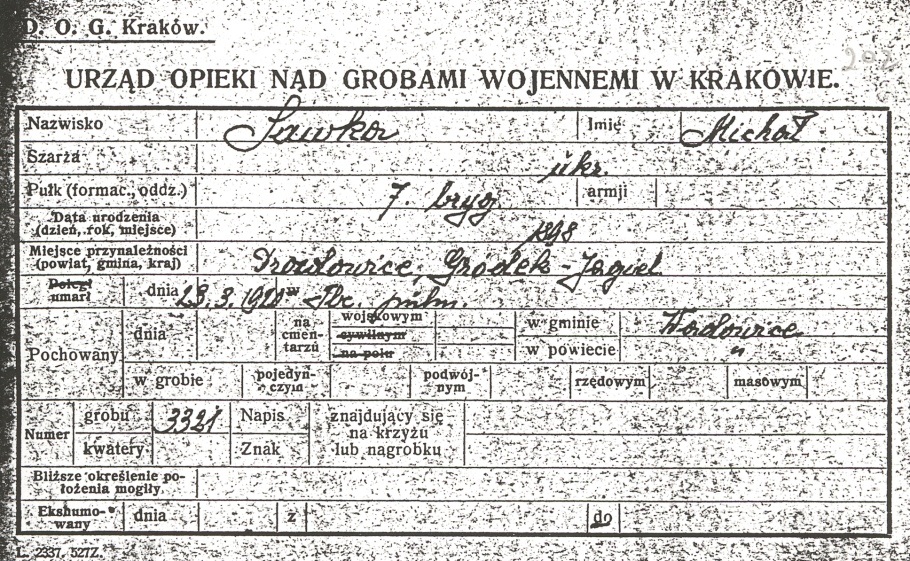 D. O. G. Kraków.
202
URZĄD OPIEKI NAD GROBAMI WOJENNEMI W KRAKOWIE.
Nazwisko Sawka Imię Michał
Szarża ukr.
Pułk (formac., oddz.) 7. bryg. armji
Data urodzenia
(dzień, rok, miejsce) 1898
Miejsce przynależności
(powiat, gmina, kraj) Gródek-Jagiel.
Poległ
umarł dnia 23.3. w
Pochowany dnia na cmentarzu wojskowym
cywilnym
na polu
w gminie Wadowice
w powiecie "
w grobie pojedyńczym podwójnym rzędowym masowym
Numer grobu 3321 Napis znajdujący się
na krzyżu
lub nagrobku
kwatery Znak
Bliższe określenie położenia mogiły
Ekshumowany dnia z do
L. 2337. 527Z.